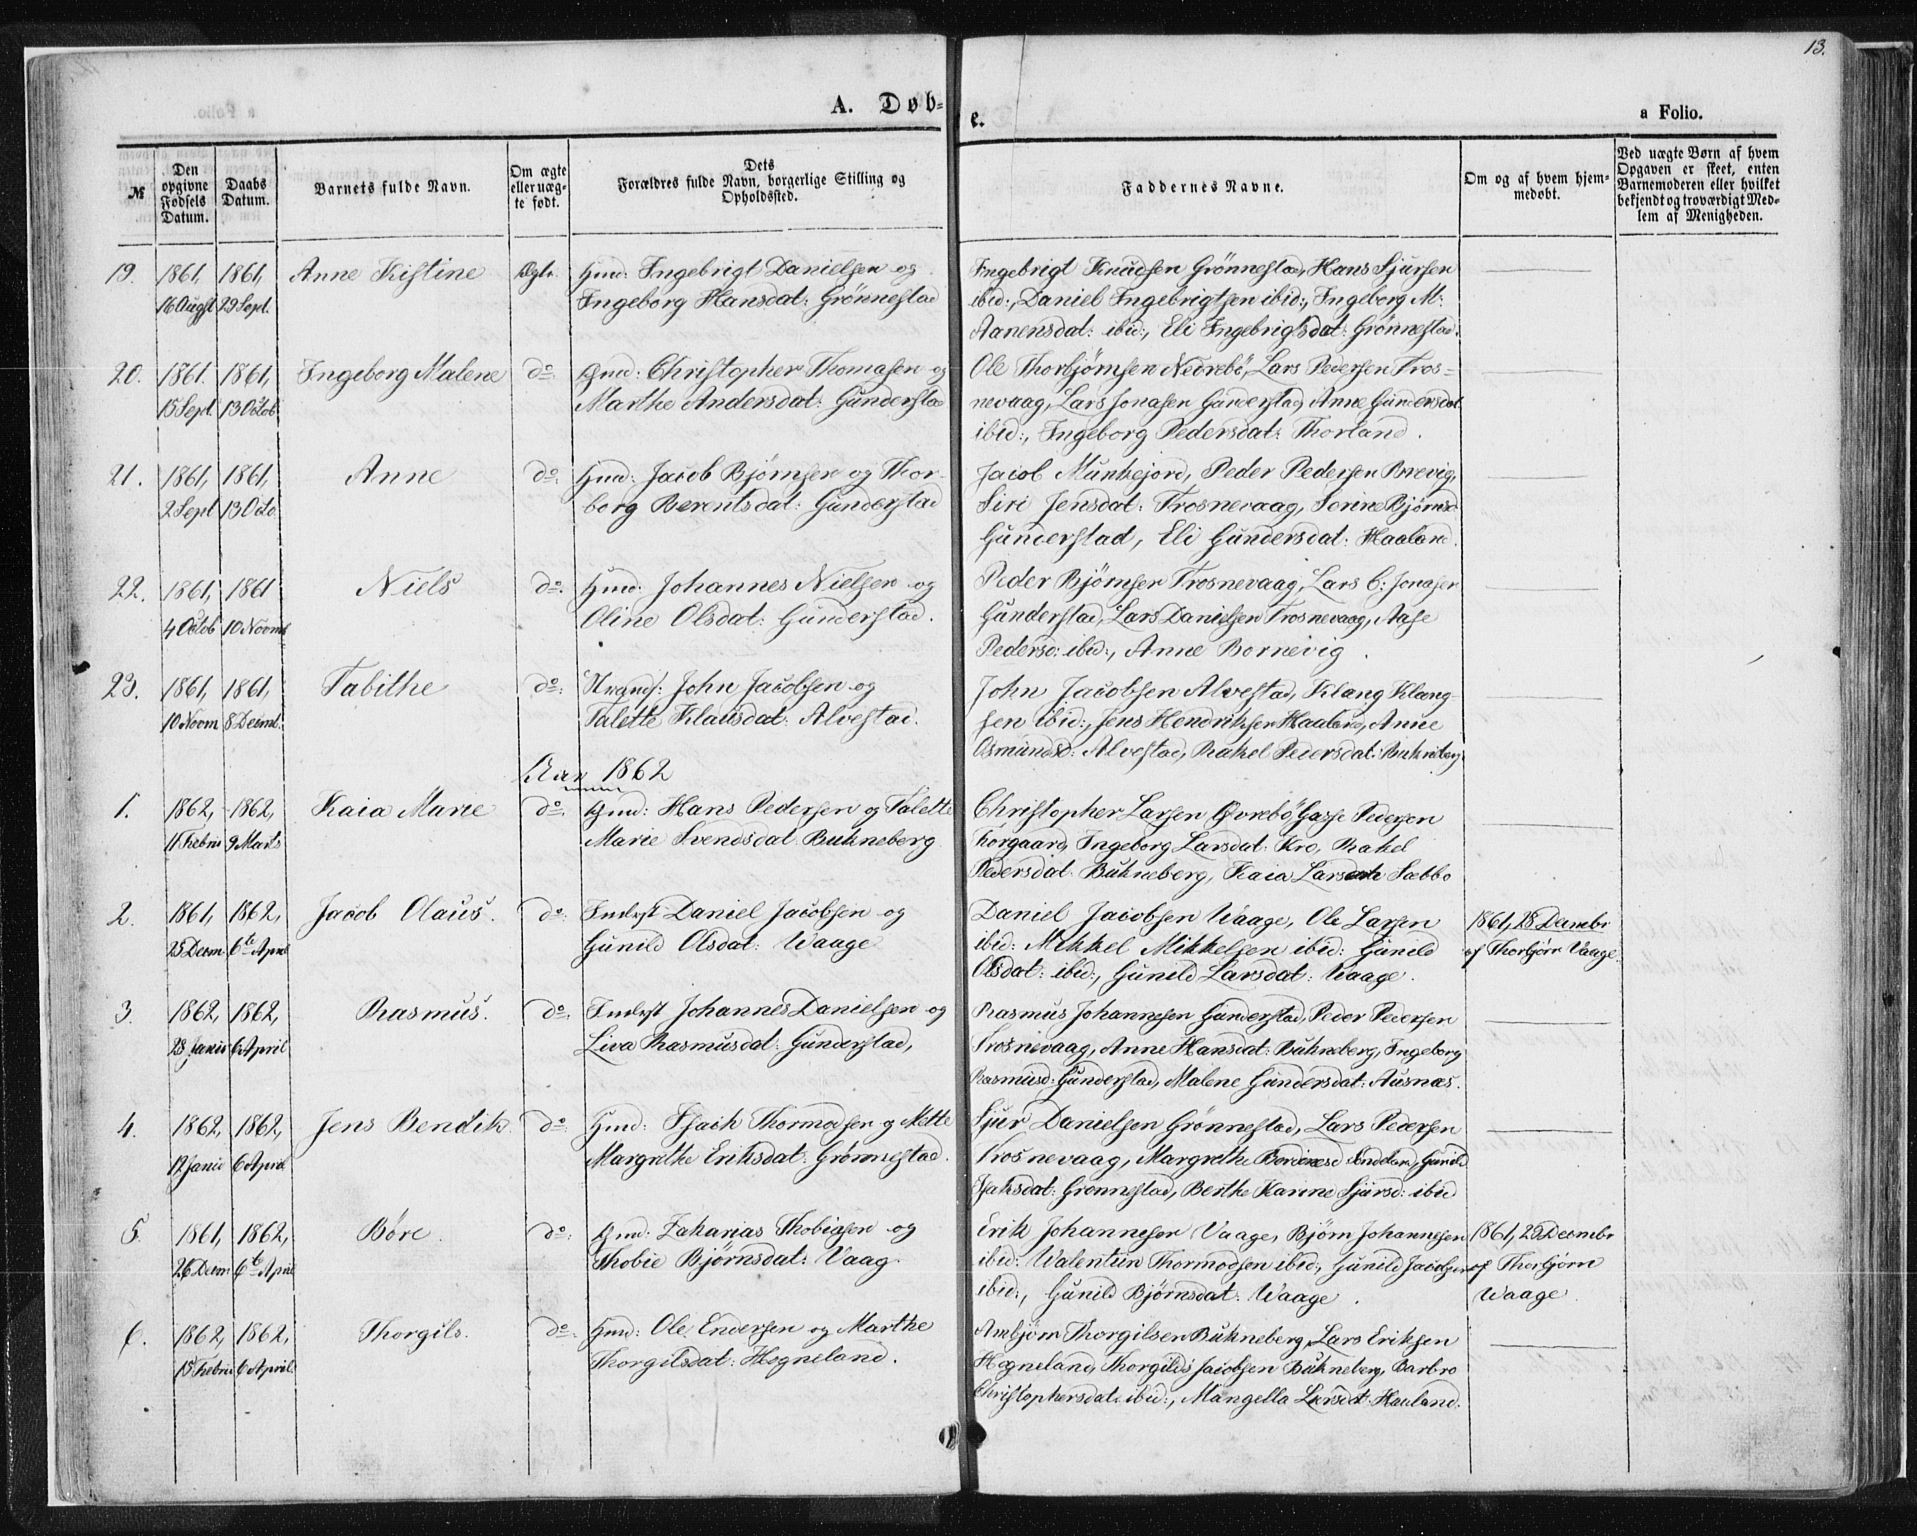 13.
A. Døb-
e.
a Folio.
№
Den opgivne Fødsels Datum.
Daabs Datum.
Barnets fulde Navn.
Om ægte eller uæg-te født.
Dets
Forældres fulde Navn, borgerlige Stilling og Opholdssted.
Faddernes Navne.
Om og af hvem hjem-medøbt.
Ved uægte Børn af hvem Opgaven er skeet, enten Barnemoderen eller hvilket bekjendt og troværdigt Med-lem af Menigheden.
19. 1861, 1861, Anne Kistine Ægte Huus: Ingebrigt Danielsen og Ingebrigt Knudsen Grönnestad, Hans Sjursen
16 Augst 29 Sept. Ingeborg Hansdat: Grönnestad ibid:, Daniel Ingebrigtsen ibid:, Ingeborg M:
Aanensdat: ibid:, Eli Ingebrigtsdat: Grønnestad.
20. 1861. 1861, Ingeborg Malene do. Christopher Thomasen og Ole Thorbjørnsen Nedrebö, Lars Pedersen Tros-
15 Sept. 13 Octob Marthe Andersdat: Gunderstad nevaag, Lars Jonasen Gunderstad, Anne Gundersdat
ibid:, Ingeborg Pedersdat: Thorland.
21. 1861, 1861, Anne do. Jacob Bjørnsen og Thor- Jacob Munkejord, Peder Pedersen Brevig,
2 Sept 13 Octo borg Berentsdat: Gunderstad Siri Jensdat: Trosnevaag, Serine Bjørnsd
Gunderstad, Eli Gundersdat: Haaland.
22. 1861, 1861 Niels do. Johannes Nielsen og Peder Bjørnsen Trosnevaag, Lars C: Jonasen
4 Octob 10 Novmb Oline Olsdat: Gunderstad. Gunderstad, Lars Danielsen Trosnevaag, Aase
Pedersd: ibid:, Anne Bornevig.
23. 1861, 1861, Tabithe do. Strands: John Jacobsen og John Jacobsen Alvestad, Klang Klang-
10 Novm 8 Decmb. Talette Klausdat: Alvestad. sen ibid:, Jens Hendriksen Haaland, Anne
Osmundsd: Alvestad, Rakel Pedersdat: Bukneberg
Aar 1862
1. 1862, 1862, Kaia Marie do. Hans Pedersen og Talette Christopher Larsen Øvrebö, Gasse Pedersen
11 Febru 9 Marts Marie Svendsdat: Bukneberg Korgaard, Ingeborg Larsdat: Kro, Rakel
Pedersdat: Bukneberg, Kaia Larsdat Sæbbø
2. 1861, 1862, Jacob Olaus. do. Inderst Daniel Jacobsen og Daniel Jacobsen Waage, Ole Larsen 1861, 28 Decmbr
25 Decm 6te April Gunild Olsdat: Waage ibid: Mikkel Mikkelsen ibid: Gunild af Thorbjørn Vaage.
Olsdat: ibid:, Gunild Larsdat: Waage.
3. 1862, 1862, Rasmus. do. Inderst Johannes Danielsen og Rasmus Johannesen Gunderstad, Peder Pedersen
28 Januar 6 April Liva Rasmusdat: Gunderstad, Trosnevaag, Anne Hansdat: Bukneberg, Ingeborg
Rasmusd: Gunderstad, Malene Gundersdat: Ausnæs.
4. 1862, 1862, Jens Bendik. do. Isach Thormodsen og Mette Sjur Danielsen Grønnestad, Lars Pedersen
17 Janu 6 April Margrethe Eriksdat: Grønnestad. Trosnevaag, Margrethe Gunild
Isaksdat: Grønnestad, Berthe Karine Sjursd: ibid
5. 1861, 1862, Børe. do. Zakarias Thobiasen og Erik Johannesen Vaage, Bjørn Johannesen 1861, 26 Decmbr
26 Decm 6te April Thobie Bjørnsdat: Vaag. ibid: Walentin Thormodsen ibid:, Gunild Jacobsen af Thorbjørn
ibid:, Gunild Bjørnsdat: Waage. Waage
6. 1862, 1862, Thorgils. do. Ole Endersen og Marthe Ambjørn Thorgilsen Bukneberg, Lars Eriksen
15 Febru 6 April. Thorgilsdat: Hogneland. Hogneland, Thorgilds Jacobsen Bukneberg, Barbro
Christophersdat: ibid:, Mangella Larsdat: Haaland.